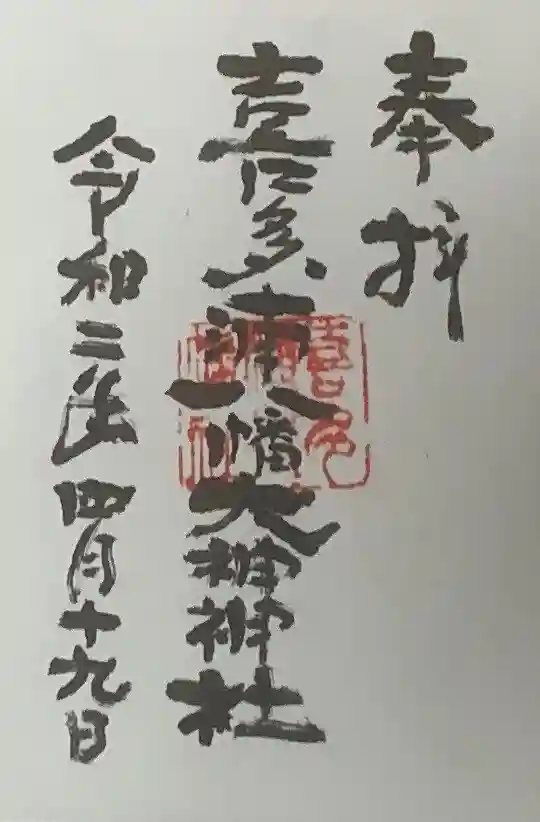 奉拝
喜多浦八幡大神神社
令和二年四月十九日